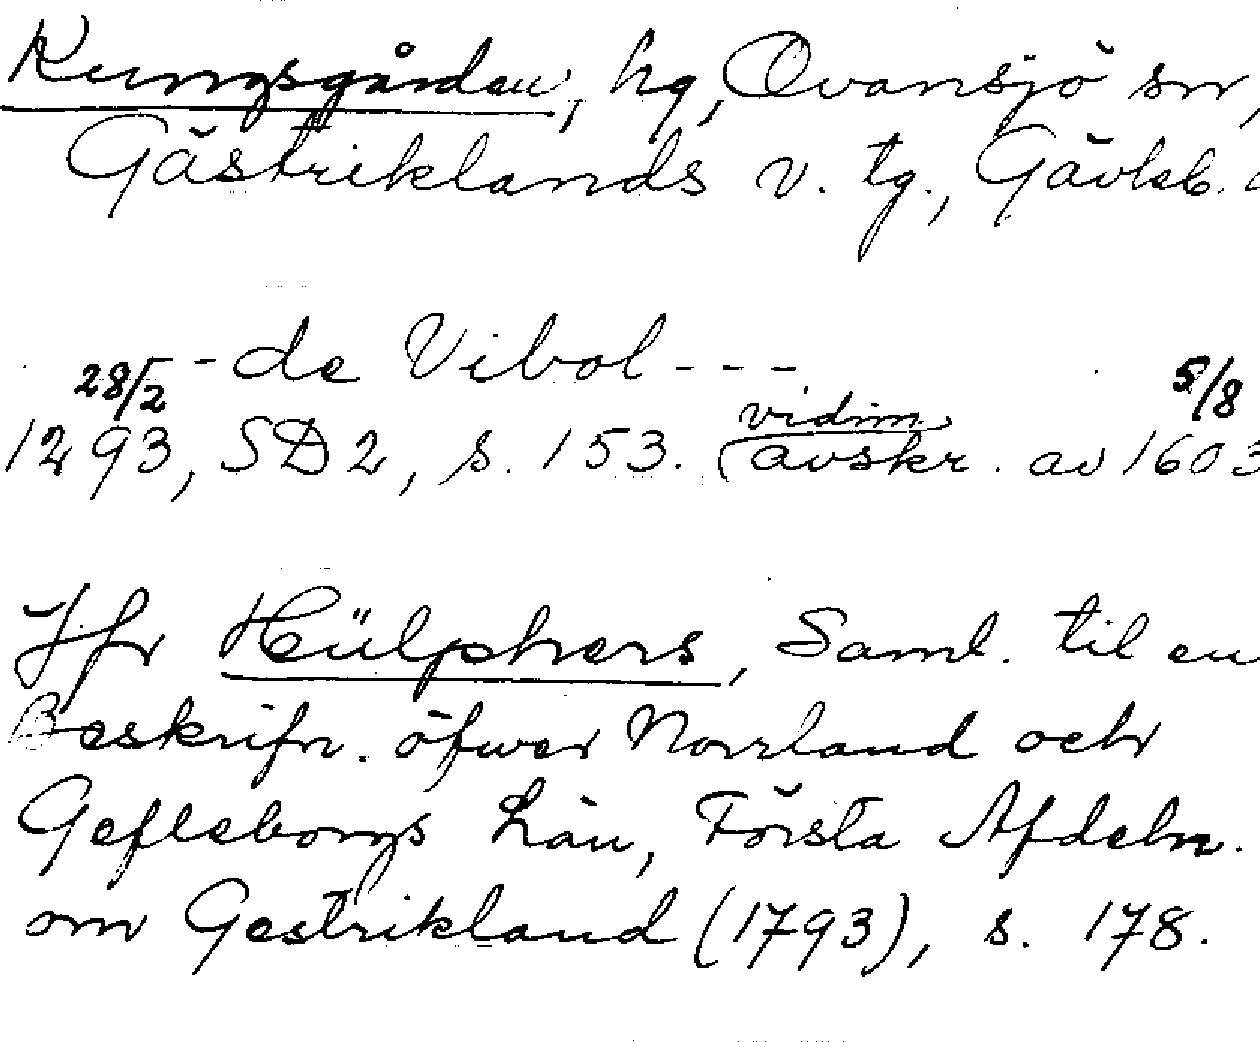 Kungsgården, hg, Ovansjö sn,
Gästriklands v. tg., Gävleb.
- de Vibol - - -
28/2 5/8
vidim
1293, SD 2, s. 153. (avskr. av 1603
Jfr Hülphers, Saml. til en
Beskrifn. öfwer Norrland och
Gefleborgs Län, Första Afdeln.
om Gestrikland (1793), s. 178.